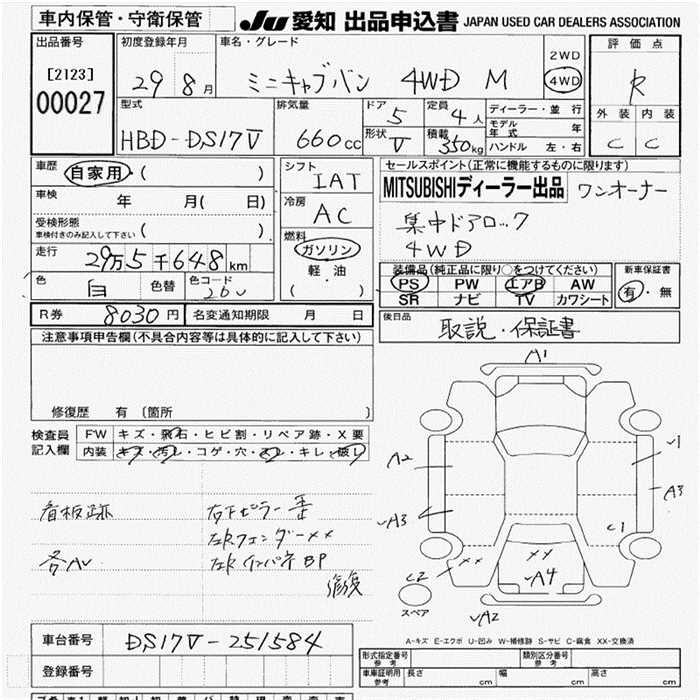 車内保管・守衛保管
JU 愛知 出品申込書 JAPAN USED CAR DEALERS ASSOCIATION
出品番号
[2123]
00027
初度登録年月
29年8月
車名・グレード
ミニキャブバン 4WD M
2WD
4WD
評価点
R
外装 内装
C C
型式
HBD-DS17V
排気量
660cc
ドア 5
形状 V
定員 4人
積載 350kg
ディーラー・並行
モデル年式 年
ハンドル 左・右
車歴
自家用 ( )
車検
年 月( 日)
受検形態
車検付きのみ記入して下さい ( )
走行
29万5千648km
色 白 色替 色コード 26U
シフト
IAT
冷房
AC
燃料
ガソリン
軽・油
( ・ )
セールスポイント(正常に機能するものに限ります)
MITSUBISHIディーラー出品 ワンオーナー
集中ドアロック
4WD
装備品(純正品に限り○をつけてください)
PS PW エアB AW
SR ナビ TV カワシート
新車保証書
有・無
R券 8030円 名変通知期限 月 日
後日品 取説・保証書
注意事項申告欄(不具合内容等は具体的に記入して下さい)
修復歴 有 (箇所 )
検査員
記入欄
FW キズ・飛石・ヒビ割・リペア跡・X要
内装 キズ・汚レ・コゲ・穴・スレ・キレ・破レ
看板跡
各AU
右下ピラー歪
左Rフェンダー××
左RインパネBP
修復
A1
A2
A3
1
A3
C1
C2
××
××
A4
A2
スペア
A-キズ E-エクボ U-凹み W-補修跡 S-サビ C-腐食 XX-交換済
車台番号 DS17V-251584
登録番号
形式指定番号 参考
類別区分番号 参考
車庫証明用 参考
長さ cm 幅 cm 高さ cm